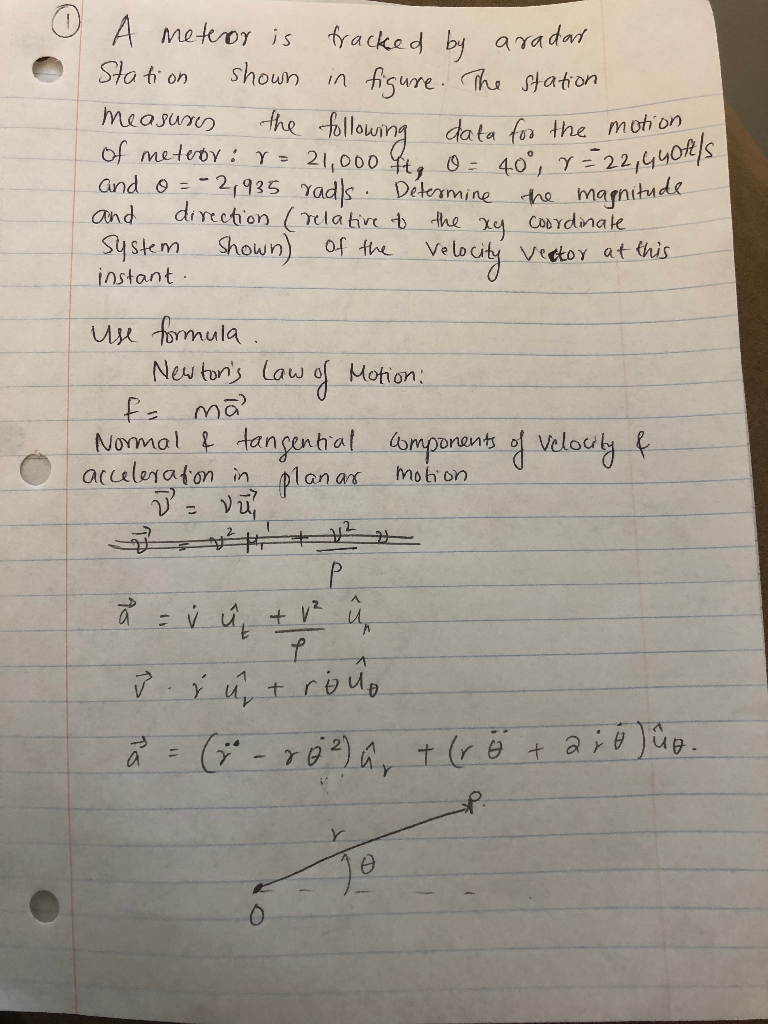 ① A meteor is tracked by a radar
Station shown in figure. The station
measures the following data for the motion
of meteor : r = 21,000 ft, θ = 40°, r = -22,440ft/s
and θ = -2,935 rad/s. Determine the magnitude
and direction (relative to the xy coordinate
System shown) of the velocity vector at this
instant.
Use formula.
Newton's Law of Motion:
f = ma⃗
Normal & tangential components of velocity &
acceleration in planar motion
v⃗ = vu⃗₁
ρ
a⃗ = v̇ û_t + v²/ρ û_n
v⃗ . ṙ û_r + rθ̇ û_θ
a⃗ = (r̈ - rθ̇²) û_r + (r θ̈ + 2 ṙ θ̇) û_θ.
P.
r
θ
O